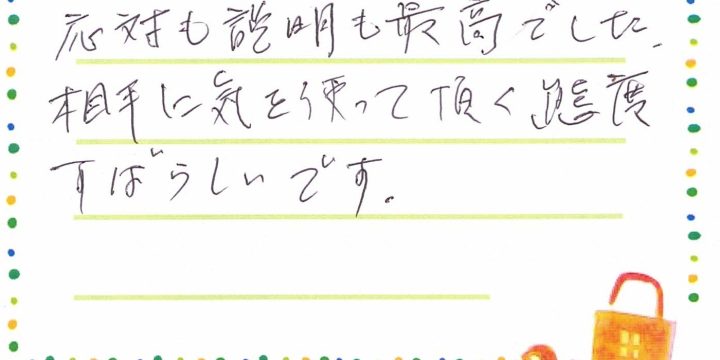 応対も説明も最高でした。
相手に気を使って頂く態度
すばらしいです。